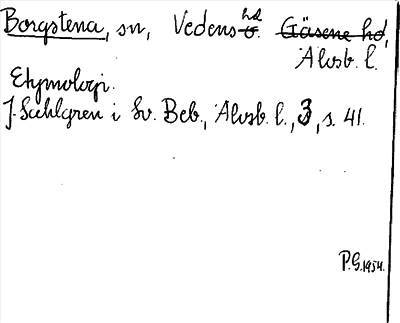 Borgstena, sn, Vedens hd o. Gäsene hd,
Älvsb. l.
Etymologi.
J. Sahlgren i Sv. Beb., Älvsb. l., 3, s. 41.
P.G. 1954.